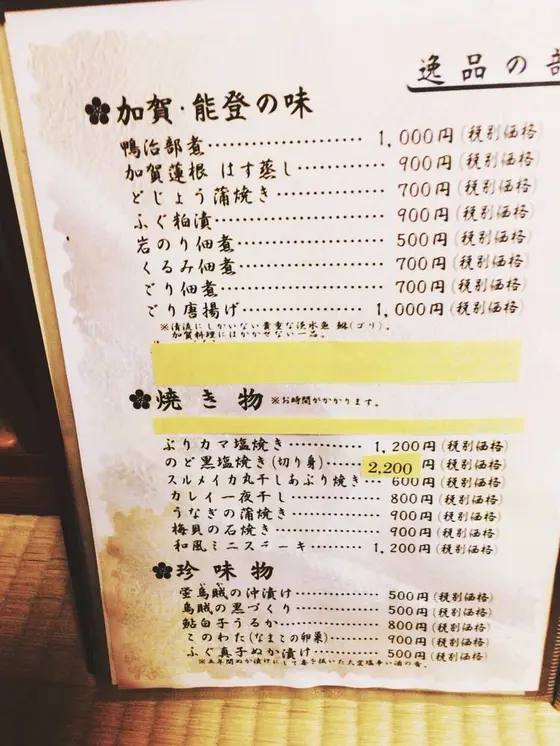 逸品の部
加賀・能登の味
鴨治部煮 1,000円(税別価格)
加賀蓮根 はす蒸し 900円(税別価格)
どじょう蒲焼き 700円(税別価格)
ふぐ粕漬 900円(税別価格)
岩のり佃煮 500円(税別価格)
くるみ佃煮 700円(税別価格)
ごり佃煮 700円(税別価格)
ごり唐揚げ 1,000円(税別価格)
※清流にしかいない貴重な淡水魚 鮴(ゴリ)。
加賀料理にはかかせない一品。
焼き物 ※お時間がかかります。
ぶりカマ塩焼き 1,200円(税別価格)
のど黒塩焼き(切り身) 2,200円(税別価格)
スルメイカ丸干しあぶり焼き 600円(税別価格)
カレイ一夜干し 800円(税別価格)
うなぎの蒲焼き 900円(税別価格)
梅貝の石焼き 900円(税別価格)
和風ミニステーキ 1,200円(税別価格)
珍味物
蛍烏賊の沖漬け 500円(税別価格)
烏賊の黒づくり 500円(税別価格)
鮎白子うるか 800円(税別価格)
このわた(なまこの卵巣) 900円(税別価格)
ふぐ真子ぬか漬け 500円(税別価格)